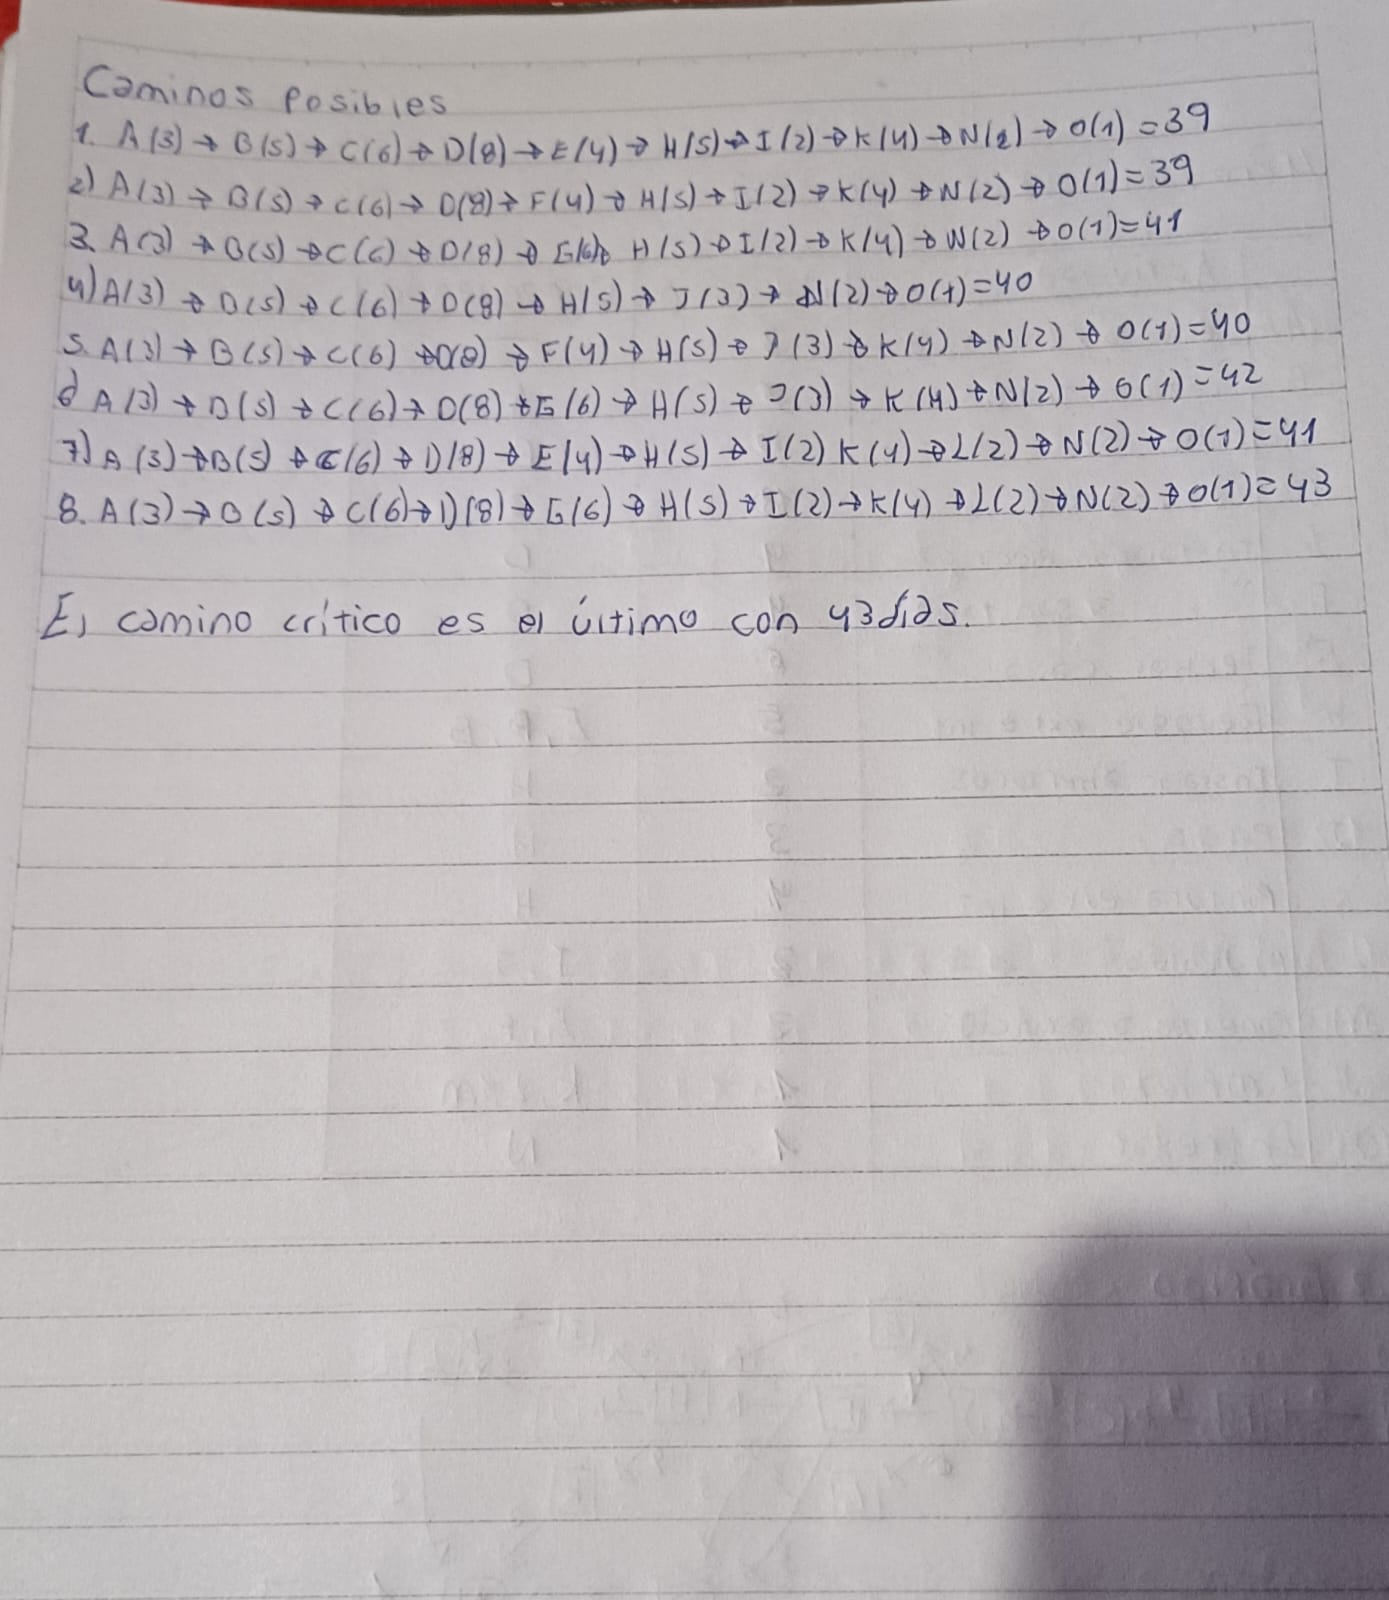 Caminos posibles
1. A(3) → B(5) → C(6) → D(8) → E(4) → H(5) → I(2) → K(4) → N(2) → O(1) = 39
2) A(3) → B(5) → C(6) → D(8) → F(4) → H(5) → I(2) → K(4) → N(2) → O(1) = 39
3. A(3) → B(5) → C(6) → D(8) → G(6) → H(5) → I(2) → K(4) → N(2) → O(1) = 41
4) A(3) → B(5) → C(6) → D(8) → H(5) → J(3) → N(2) → O(1) = 40
5. A(3) → B(5) → C(6) → D(8) → F(4) → H(5) → J(3) → K(4) → N(2) → O(1) = 40
6 A(3) → B(5) → C(6) → D(8) → G(6) → H(5) → J(3) → K(4) → N(2) → O(1) = 42
7) A(3) → B(5) → C(6) → D(8) → E(4) → H(5) → I(2) K(4) → L(2) → N(2) → O(1) = 41
8. A(3) → B(5) → C(6) → D(8) → G(6) → H(5) → I(2) → K(4) → L(2) → N(2) → O(1) = 43
El camino crítico es el último con 43 días.